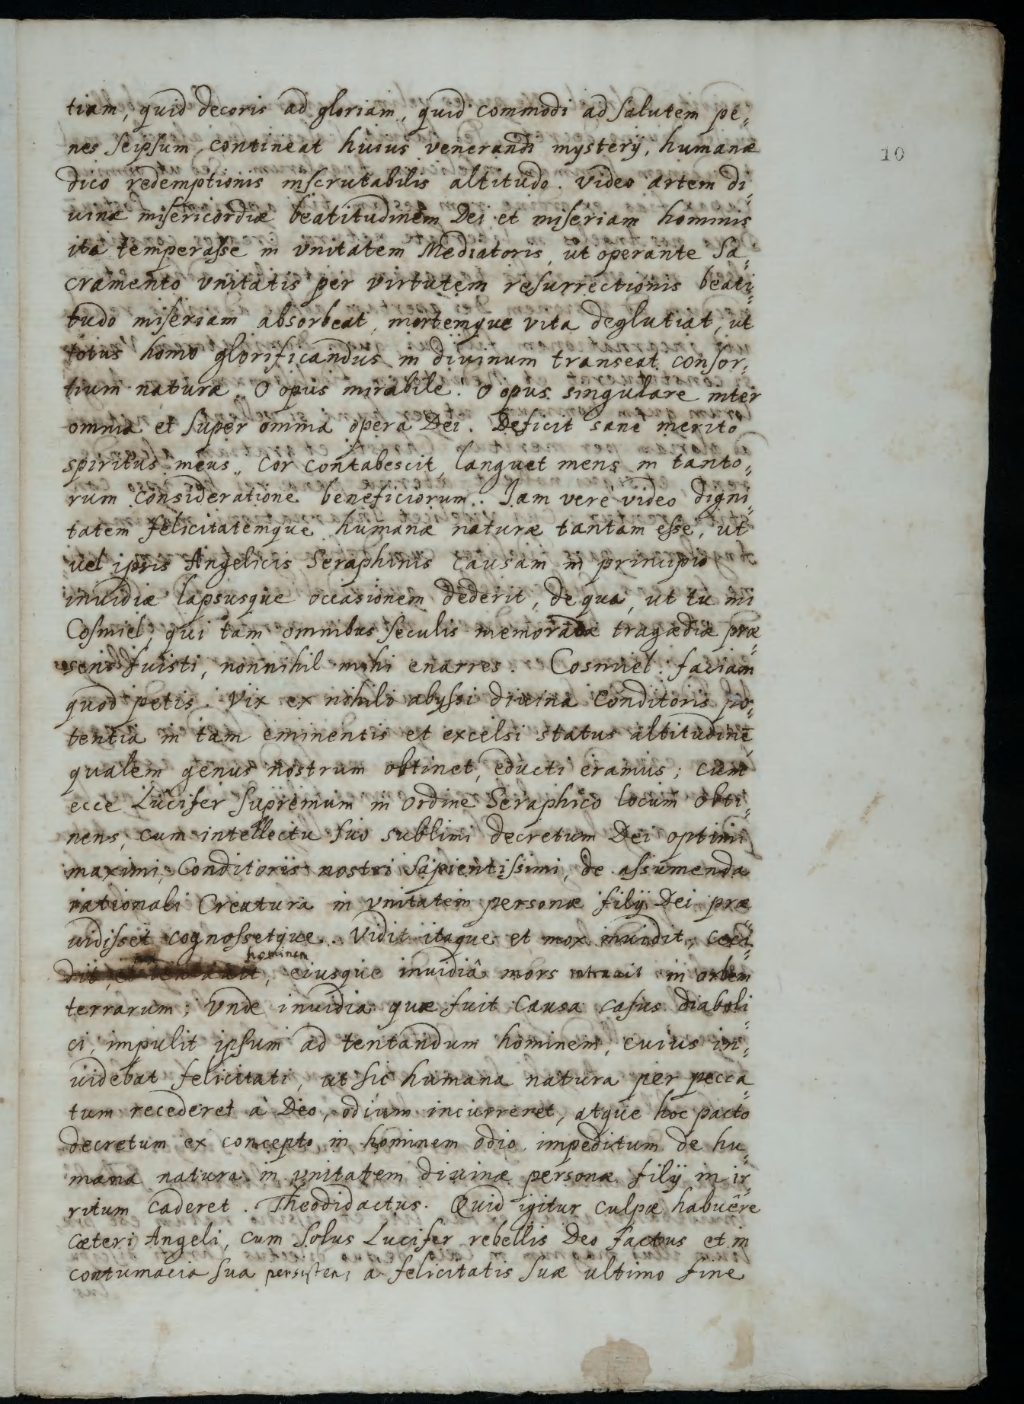 10
tiam, quid decoris ad gloriam, quid commodi ad salutem pe„
nes seipsum contineat huius venerandi mysterij, humanæ
dico redemptionis inscrutabilis altitudo. Video artem di„
uinæ misericordiæ beatitudinem Dei et miseriam hominis
ita temperasse in vnitatem Mediatoris, ut operante Sa„
cramento vnitatis per virtutem resurrectionis beati„
tudo miseriam absorbeat, mortemque vita deglutiat, ut
totus homo glorificandus in divinum transeat consor„
tium naturæ. O opus mirabile. O opus singulare inter
omnia et super omnia opera Dei. Deficit sane merito
spiritus meus, Cor contabescit, languet mens in tanto„
rum consideratione beneficiorum. Iam veré video digni„
tatem felicitatemque humanæ naturæ tantam esse, ut
uel ipsis Angelicis Seraphinis causam in principio
inuidiæ lapsusque occasionem dederit, de qua, ut tu mi
Cosmiel, qui tam omnibus seculis memorandæ tragædiæ præ„
sens fuisti, nonnihil mihi enarres. Cosmiel. faciam
quod petis. Vix ex nihili abyssi diuina Conditoris po„
tentia in tam eminentis et excelsi status altitudinē
qualem genus nostrum obtinet, educti eramus; cum
ecce Lucifer supremum in ordine Seraphico locum obti„
nens, cum intellectu suo sublimi decretum Dei optimi
maximi, Conditoris nostri sapientissimi, de assumenda
rationali Creatura in vnitatem personæ filij Dei præ„
uidisset cognossetque. Vidit itaque et mox inuidit, ceci„
dit, et hominem, eiusque inuidiâ mors intrauit in orbem
terrarum; Vnde inuidia quæ fuit causa casus diaboli„
ci, impulit ipsum ad tentandum hominem, cuius in„
uidebat felicitati, ut sic humana natura per pecca„
tum recederet à Deo, odium incurreret, atque hoc pacto
decretum ex concepto in hominem odio impeditum de hu„
mana natura in vnitatem diuinæ personæ filij in ir„
ritum caderet. Theodidactus. Quid igitur culpæ habuêre
cæteri Angeli, cum solus Lucifer rebellis Deo factus et in
contumacia sua persistens a felicitatis suæ ultimo fine